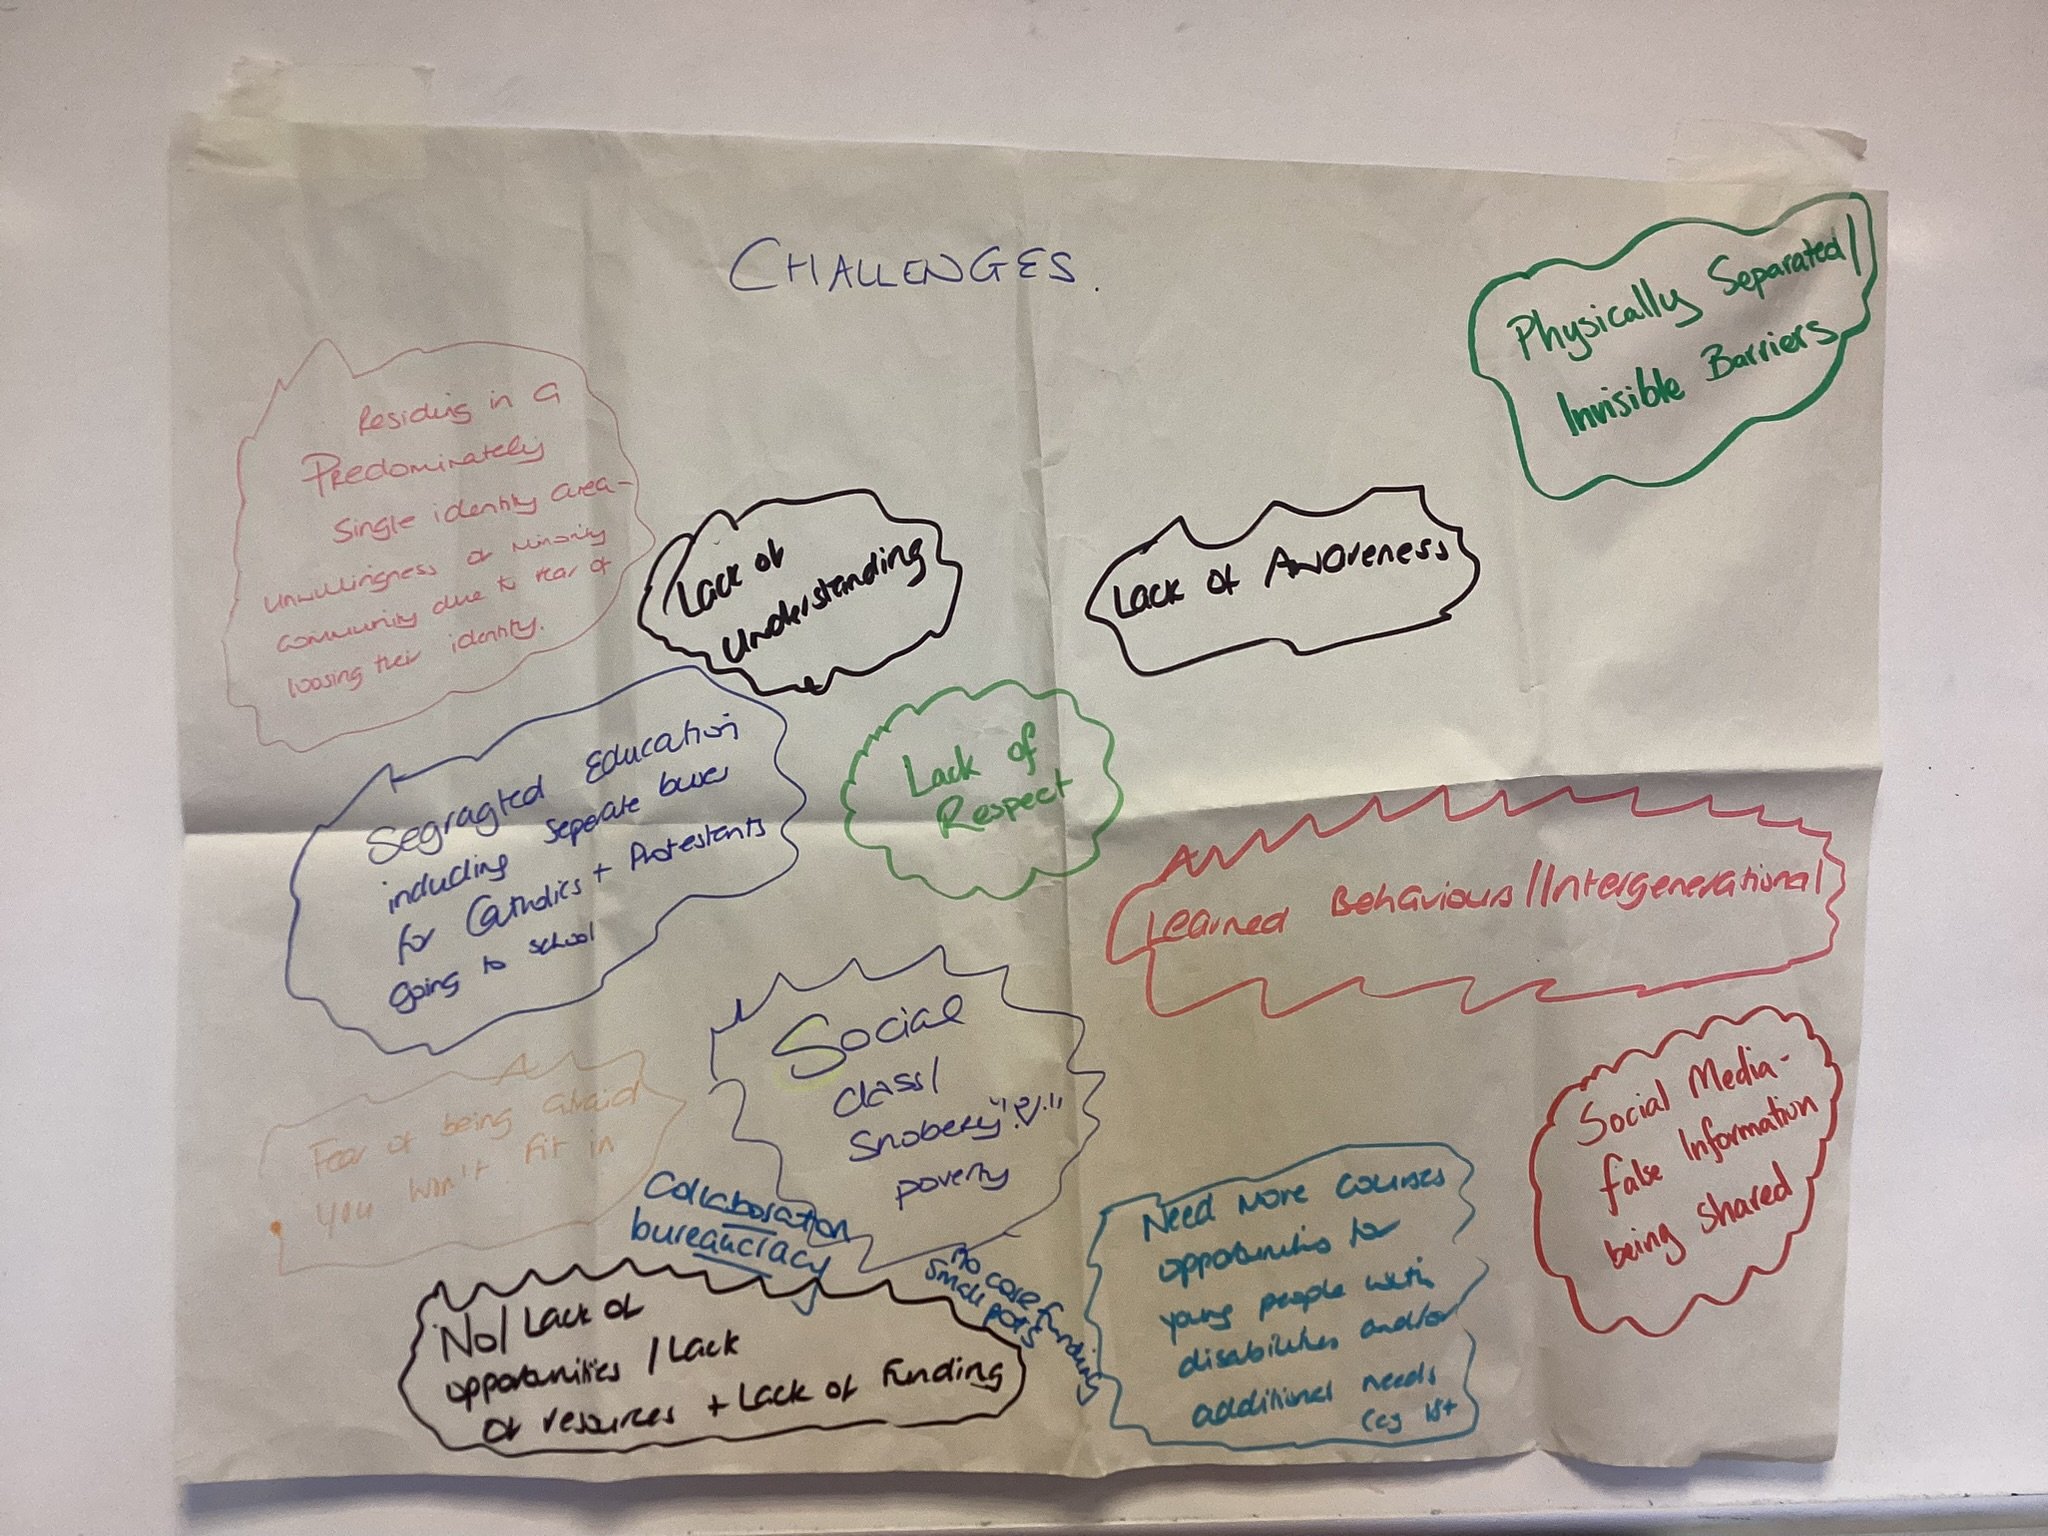 CHALLENGES.
Physically Separated/
Invisible Barriers
Residing in a
Predominately
Single identity area-
unwillingness of minority
community due to fear of
loosing their identity.
Lack of
understanding
Lack of Awareness
Segragted Education
including seperate buses
for Catholics + Protestants
going to school
Lack of
Respect
Learned Behaviours/Intergenerational
Social
class/
Snobery
poverty
Social Media-
false Information
being shared
Fear of being afraid
you won't fit in
Collaboration
bureaucracy
no core funding
small pots
Need more courses
opportunities for
young people with
disabilities and/or
additional needs
(eg 18+
No/Lack of
opportunities/Lack
of resources + Lack of Funding